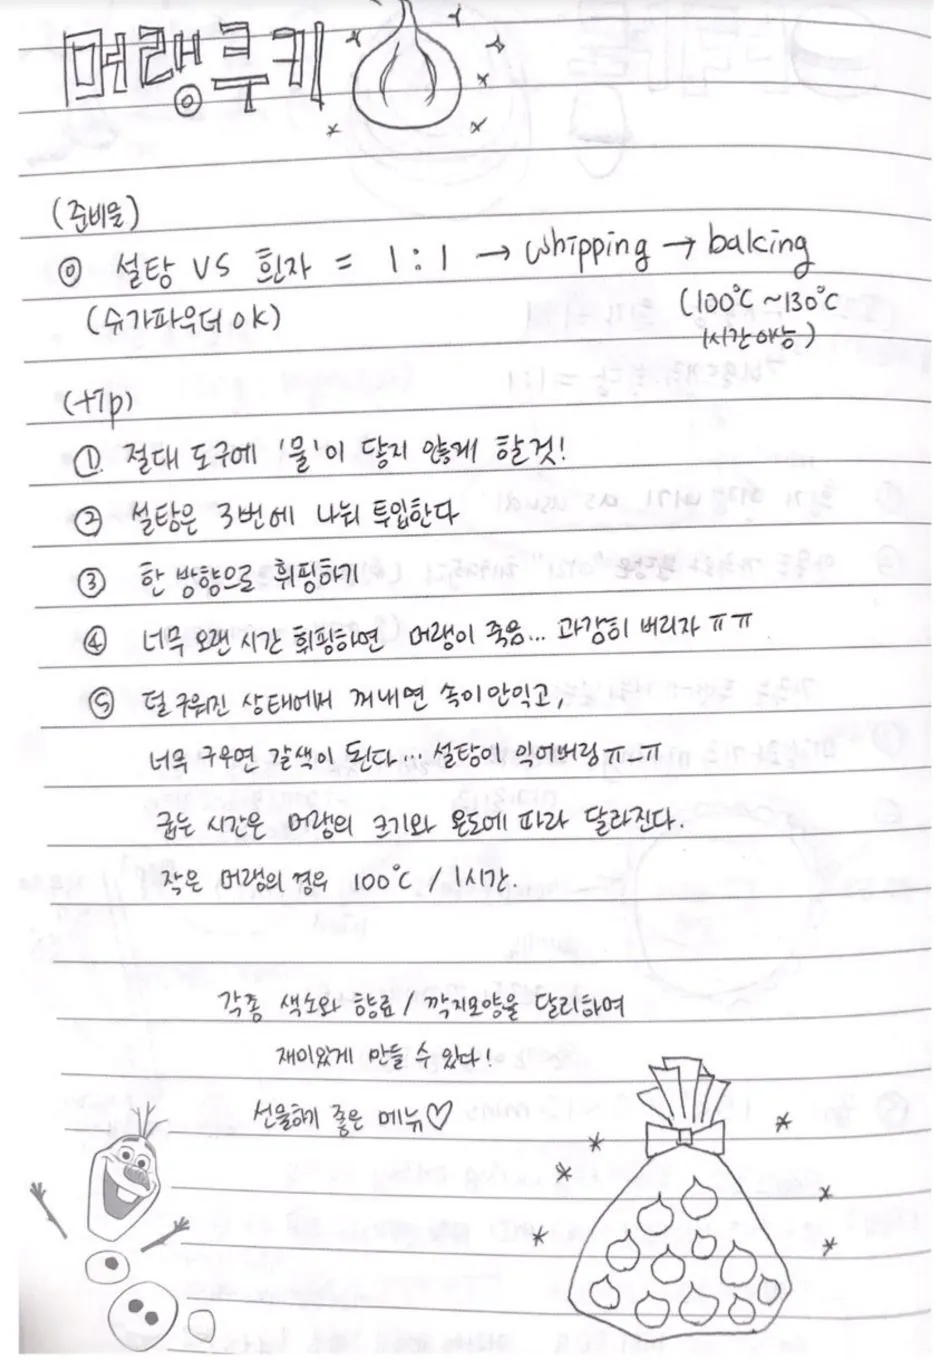 머랭쿠키
(준비물)
◎ 설탕 VS 흰자 = 1 : 1 → whipping → baking
(슈가파우더 OK)
(100℃ ~130℃
1시간 이상)
(+Tip)
① 절대 도구에 '물'이 닿지 않게 할것!
② 설탕은 3번에 나눠 투입한다
③ 한 방향으로 휘핑하기
④ 너무 오랜 시간 휘핑하면 머랭이 죽음... 과감히 버리자 ㅠㅠ
⑤ 덜 구워진 상태에서 꺼내면 속이 안익고,
너무 구우면 갈색이 된다... 설탕이 익어버림ㅠㅠ
굽는 시간은 머랭의 크기와 온도에 따라 달라진다.
작은 머랭의 경우 100℃ / 1시간.
각종 색소와 향료 / 깍지모양을 달리하여
재미있게 만들 수 있다!
선물하게 좋은 메뉴♡